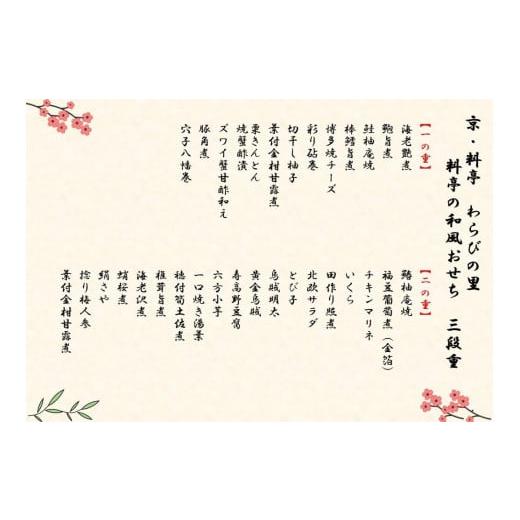 京・料亭 わらびの里
料亭の和風おせち 三段重
【一の重】
海老艶煮
鮑旨煮
鮭柚庵焼
棒鱈旨煮
博多焼チーズ
彩り砧巻
切干し柚子
葉付金柑甘露煮
栗きんとん
焼蟹酢漬
ズワイ蟹甘酢和え
豚角煮
穴子八幡巻
【二の重】
鰆柚庵焼
福豆葡萄煮(金箔)
チキンマリネ
いくら
田作り照煮
北欧サラダ
とび子
烏賊明太
黄金烏賊
寿高野豆腐
六方小芋
一口焼き湯葉
穂付筍土佐煮
椎茸旨煮
海老沢煮
蛸桜煮
絹さや
捻り梅人参
葉付金柑甘露煮